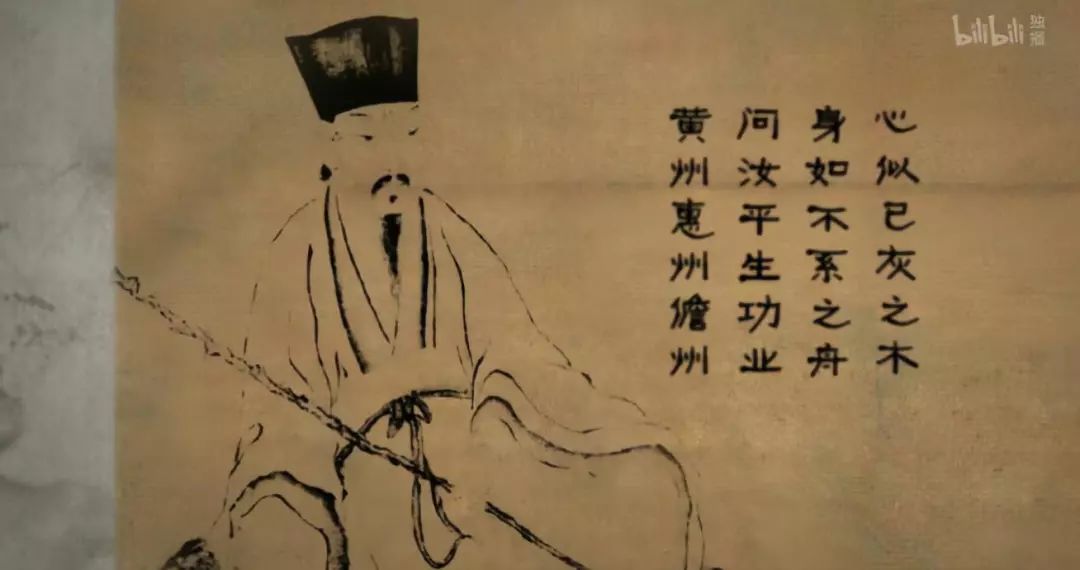 心似已灰之木
身如不系之舟
问汝平生功业
黄州惠州儋州
bilibili 独播